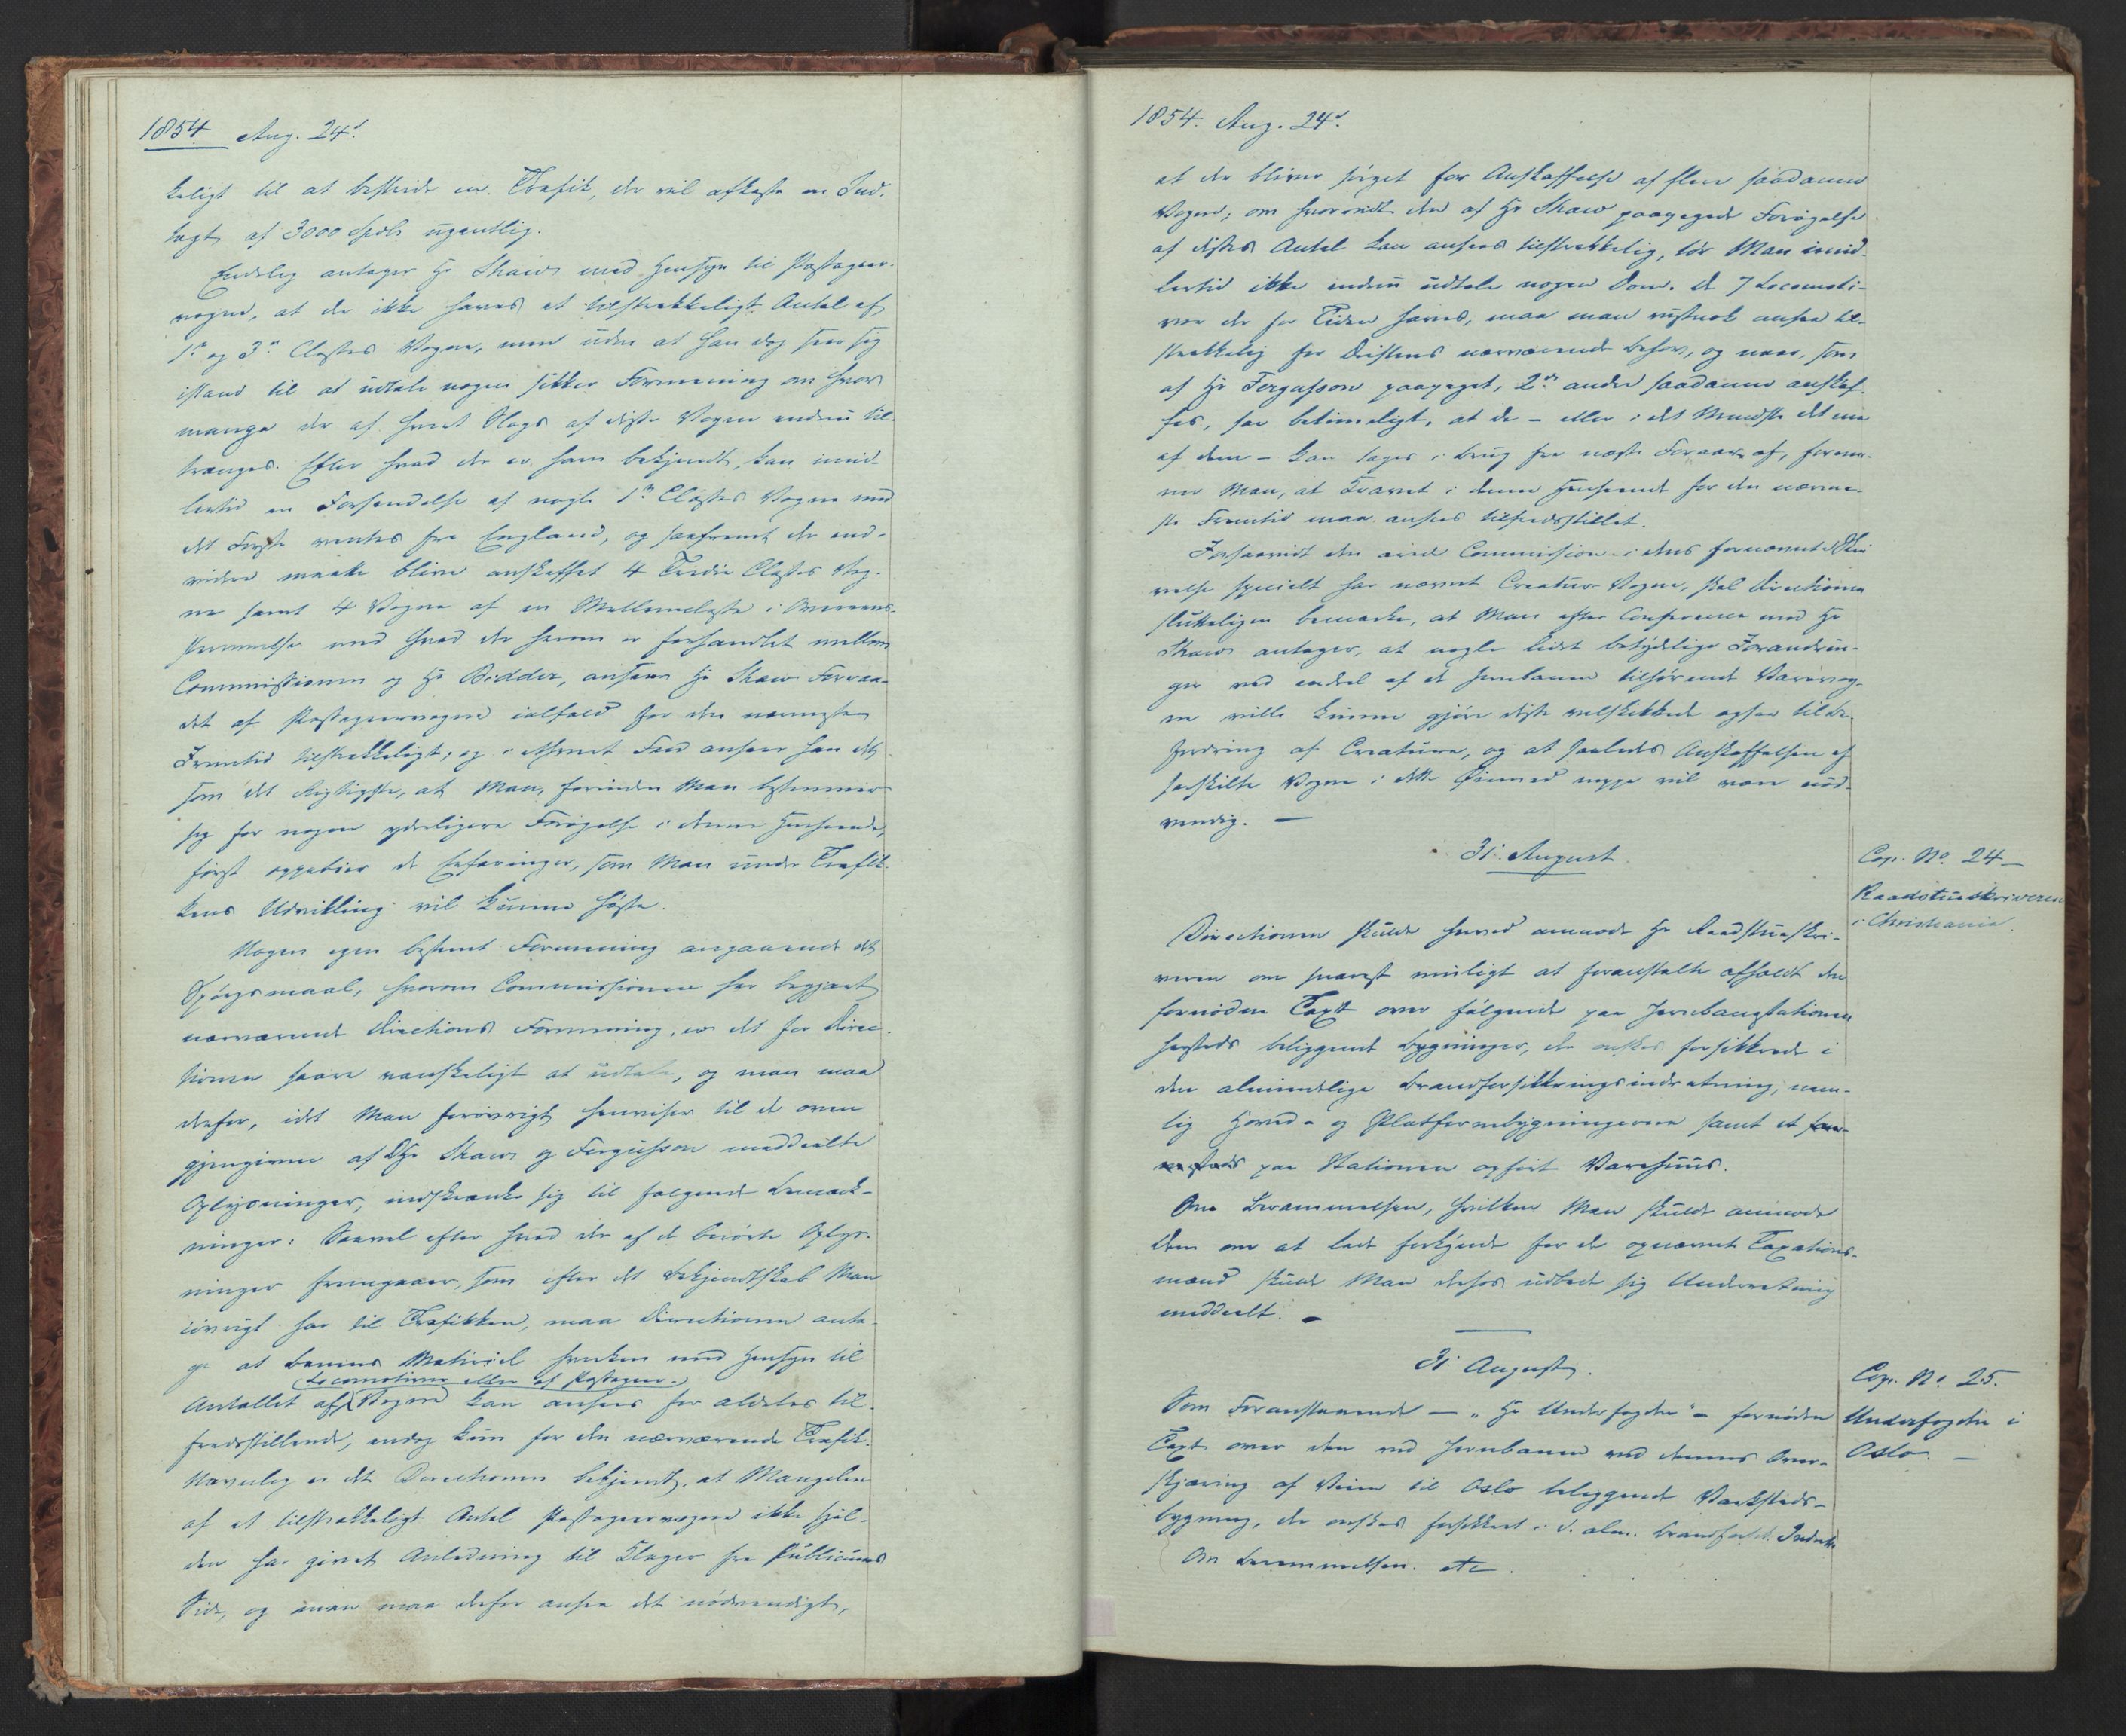 1854. Aug. 24d.
keligt til at bestride en Trafik, der vil afkaste en Ind-
tægt af 3000 Spdlr ugentlig.
Endelig antager Hr Shaw med Hensyn til Passageer-
vogne, at der ikke haves et tilstrækkeligt Antal af
1ste og 3die Classes Vogne, men uden at han dog seer sig
istand til at udtale nogen sikker Formening om hvor
mange der af hvert Slags af disse Vogne endnu til-
trænges. Efter hvad der er ham bekjendt, kan imid-
lertid en Forsendelse af nogle 1ste Classes Vogne med
det Første ventes fra England, og saafremt der end-
videre maatte blive anskaffet 4 Tredie Classes Vog-
ne samt 4 Vogne af en Mellemclasse i Overeens-
stemmelse med hvad der herom er forhandlet mellem
Commissionen og Hr Bidder, anseer Hr Shaw Forraa-
det af Passageervogne ialfald for den nærmeste
Fremtid tilstrækkeligt; og i ethvert Fald anseer han det
som det Rigtigste, at Man, forinden Man bestemmer
sig for nogen yderligere Forøgelse i denne Henseende,
først oppebier de Erfaringer, som Man under Trafik-
kens Udvikling vil kunne høste.
Nogen egen bestemt Formening angaaende det
Spörgsmaal, hvorom Commissionen har begjært
nærværende Directions Formening, er det for Direc-
tionen saare vanskeligt at udtale, og man maa
derfor, idet Man forøvrigt henviser til de oven
gjengivne af DHr Shaw og Fergusson meddeelte
Oplysninger, indskrænke sig til følgende Bemærk-
ninger: Saavel efter hvad der af de berørte Oplys-
ninger fremgaaer, som efter det Bekjendtskab Man
iøvrigt har til Trafikken, maa Directionen anta-
ge at Banens Materiel hverken med Hensyn til
Locomotiver eller af Passageer-
Antallet af Vogne kan ansees for aldeles til-
fredsstillende, endog kun for den nærværende Trafik.
Navnlig er det Directionen bekjendt, at Mangelen
af et tilstrækkeligt Antal Passageervogne ikke sjel-
den har givet Anledning til Klager fra Publicums
Side, og man maa derfor ansee det nödvendigt,
1854. Aug. 24d.
at der bliver sørget for Anskaffelse af flere saadanne
Vogne; om hvorvidt den af Hr Shaw paapegede Forøgelse
af disses Antal kan ansees tilstrækkelig, tør Man imid-
lertid ikke endnu udtale nogen Dom. De 7 Locomoti-
ver der for Tiden haves, maa man vistnok ansee til-
strækkelig for Driftens nærværende Behov, og naar, som
af Hr Fergusson paapeget, 2de andre saadanne anskaf-
fes, saa betimeligt, at de – eller i det Mindste det ene
af dem – kan tages i Brug fra næste Foraar af, formee-
ner Man, at Tarvet i denne Henseende for den nærme-
ste Fremtid maa ansees tilfredsstillet.
Forsaavidt den ærede Commission i dens fornævnte Skri
velse specielt har nævnt Creatur-Vogne, skal Directionen
sluttelig bemærke, at Man efter Conference med Hr
Shaw antager, at nogle lidet betydelige Forandrin-
ger ved endeel af de Jernbanen tilhørende Varevog-
ne ville kunne gjöre disse velskikkede ogsaa til Be-
fordring af Creature, og at saaledes Anskaffelsen af
særskilte Vogne i dette Øiemed neppe vil være nöd-
vendig. –
31 August.
Cop. No. 24 –
Raadstueskriveren
i Christiania.
Directionen skulde herved anmode Hr Raadstueskri-
veren om snarest muligt at foranstalte afholdt den
fornødne Taxt over følgende paa Jernbanestationen
hersteds beliggende Bygninger, der ønskes forsikkrede i
den almindelige Brandforsikkringsindretning, nem-
lig Hoved- og Platformbygningerne samt et
paa Stationen opført Varehuus.
Om Berammelsen, hvilken Man skulde anmode
Dem om at lade forkynde for de opnævnte Taxations-
mænd skulde Man derhos udbede sig Underretning
meddeelt. –
31 August.
Cop. No. 25.
Underfogden i
Oslo. –
Som Foranstaaende – "Hr Underfogden" – fornöden
Taxt over den ved Jernbanen ved dennes Over-
skjæring af Veien til Oslo beliggende Værksteds-
bygning, der ønskes forsikkret i d. alm. Brandfors. Indretn.
Om Berammelsen. etc.